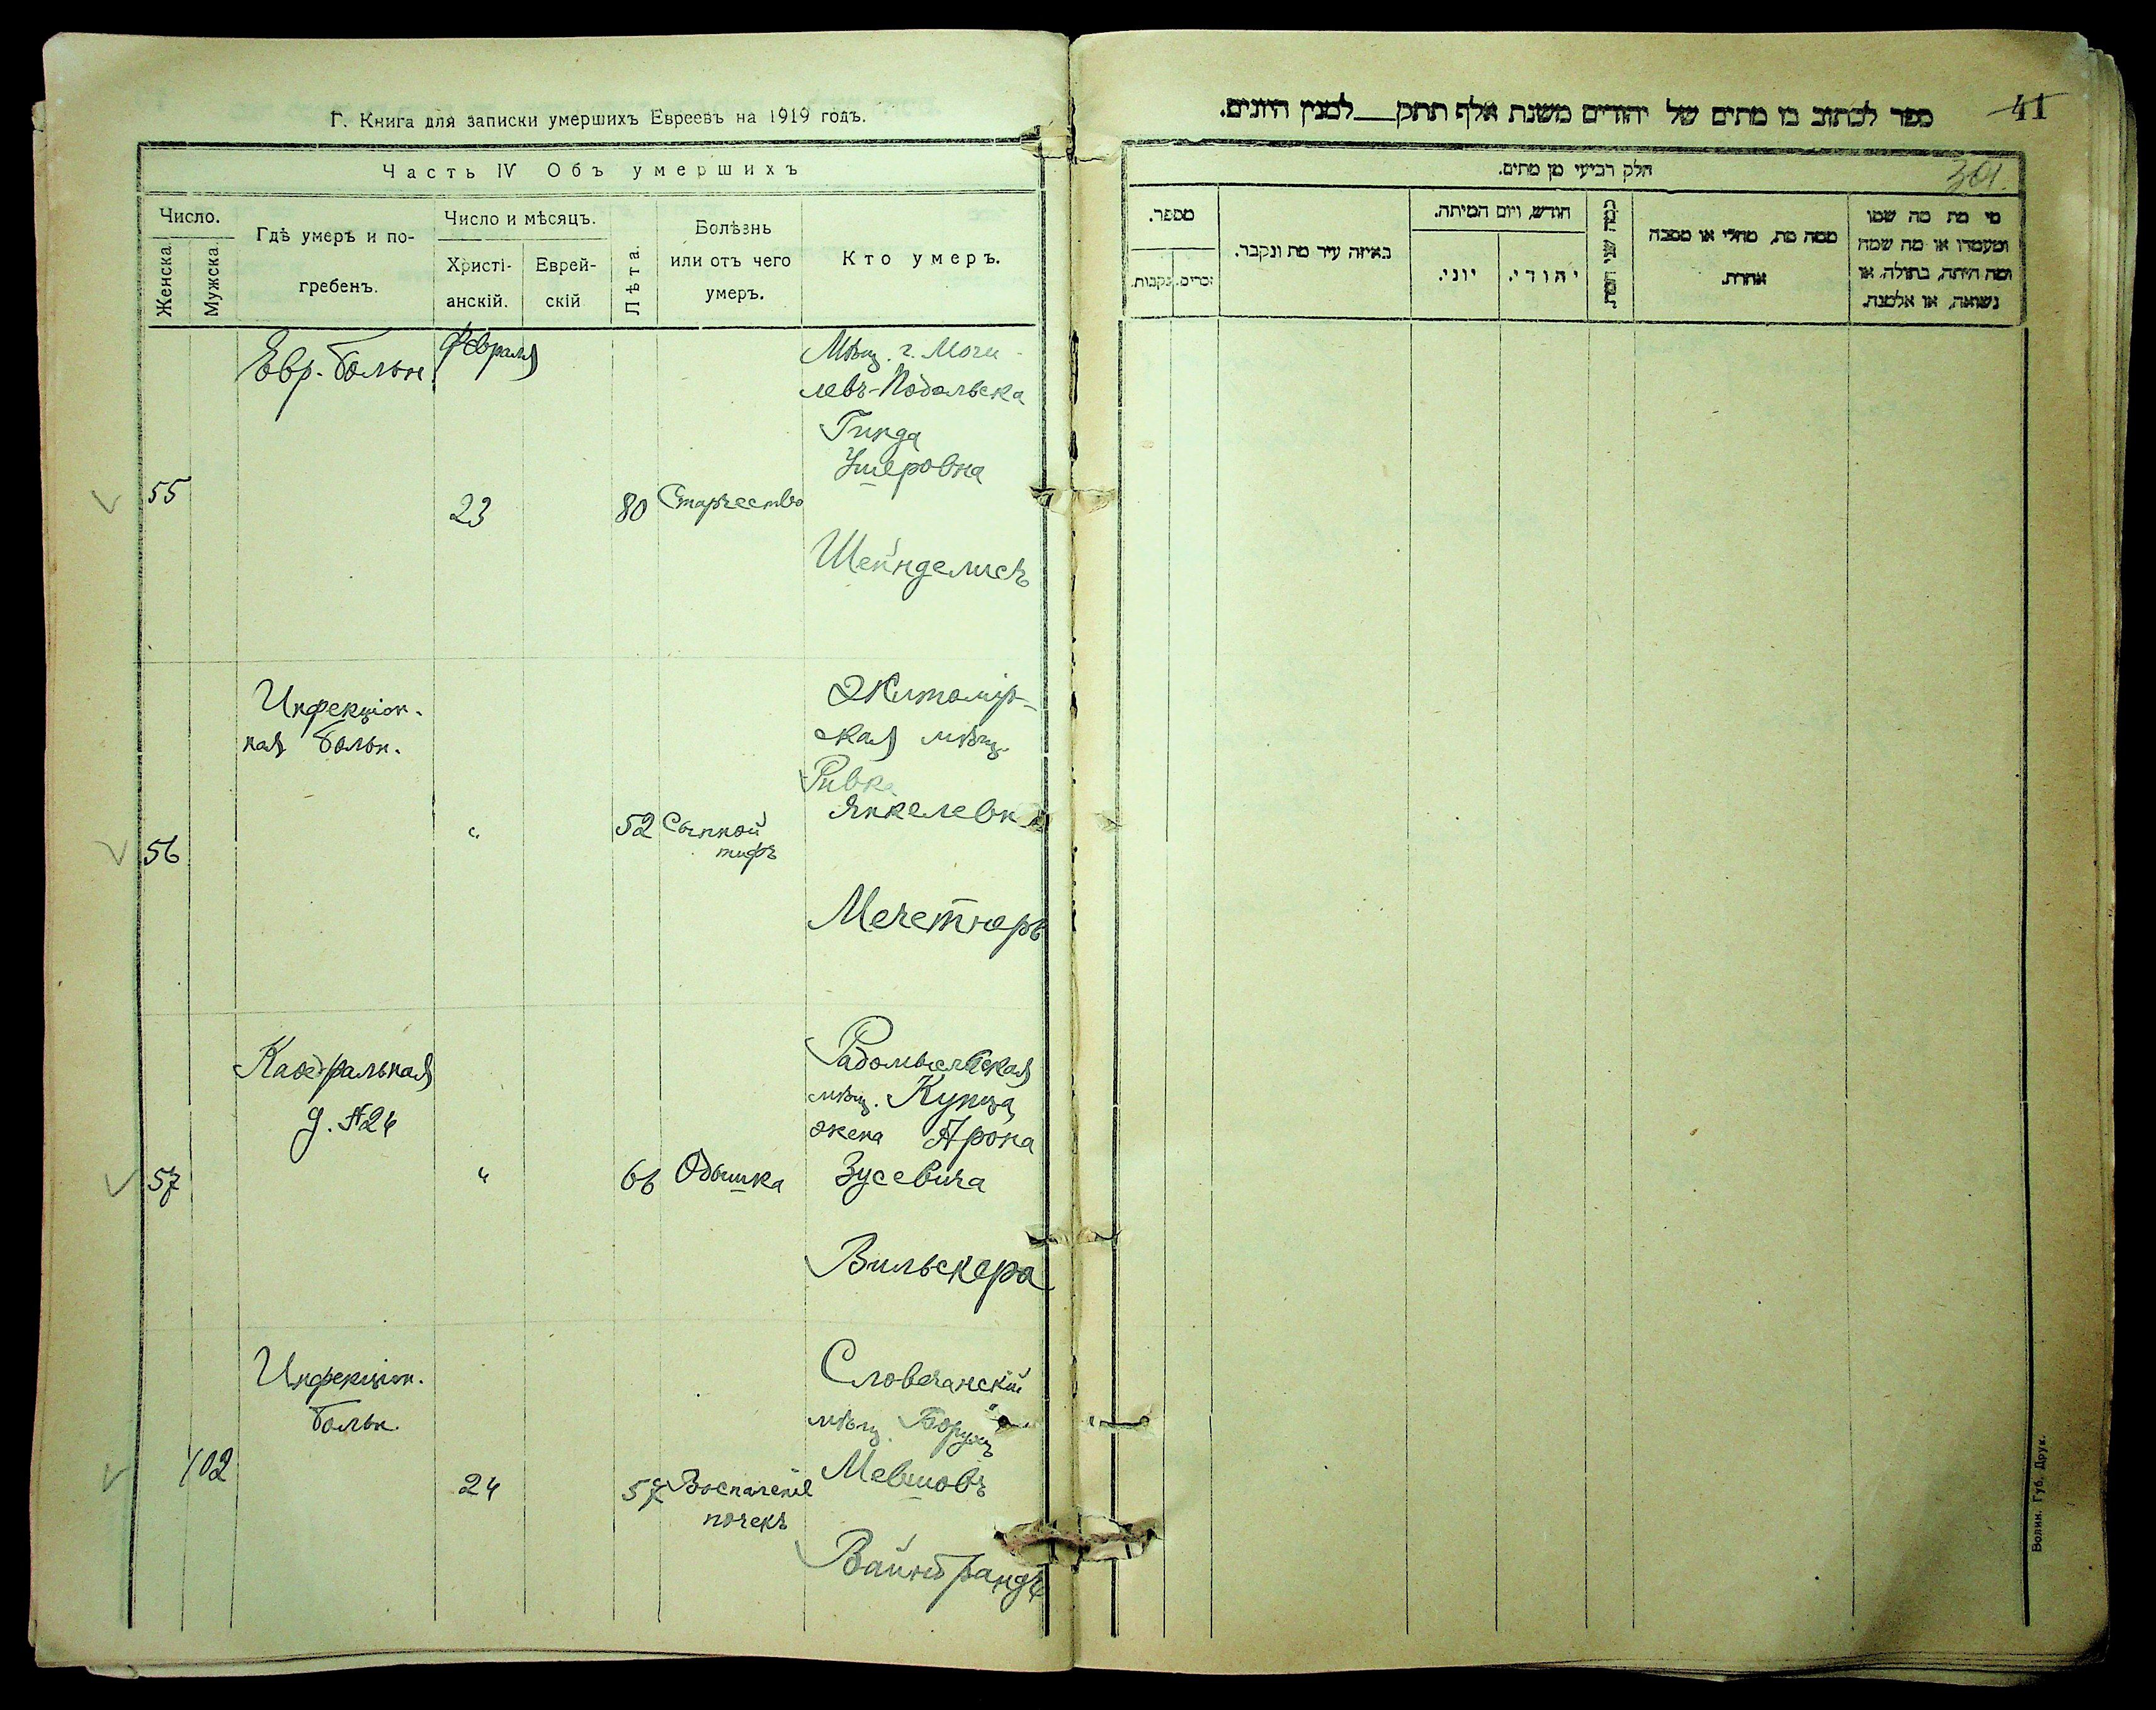 Г. Книга для записки умершихъ Евреевъ на 1919 годъ.
Часть IV Объ умершихъ
Число.
Женска
Мужска
Гдѣ умеръ и по-
гребенъ.
Число и мѣсяцъ.
Христі-
анскій.
Еврей-
скій
Лѣта.
Болѣзнь
или отъ чего
умеръ.
Кто умеръ.
55
Евр. больн.
Февраля
23
80
Старчество
Мѣщ. г. Моги-
левъ-Подольска
Гинда
Ушеровна
Шейнделисъ
56
Инфекціон-
ная больн.
"
52
Сыпной
тифъ
Житомір-
ская мѣщ.
Ривка
Янкелевна
Мечетнеръ
57
Кафедральная
д. №24
"
66
Одышка
Радомысльская
мѣщ. Купца
жена Арона
Зусевича
Вильскера
102
Инфекціон.
больн.
24
57
Воспаленіе
почекъ
Словечанскій
мѣщ. Борухъ
Мевшовъ
Вайнбрандъ
ספר לכתוב בו מתים של יהודים משנת אלף תתק___למנין היונים.
41
301.
חלק רביעי מן מתים.
מספר.
זכרים.
נקבות.
באיזה עיר מת ונקבר.
חודש, ויום המיתה.
יוני.
יהודי.
כמה שני המת.
ממה מת, מחלי או מסבה
אחרת.
מי מת מה שמו
ומעמדו או מה שמה
ומה היתה, בתולה, או
נשואה, או אלמנה.
Волин. Губ. Друк.